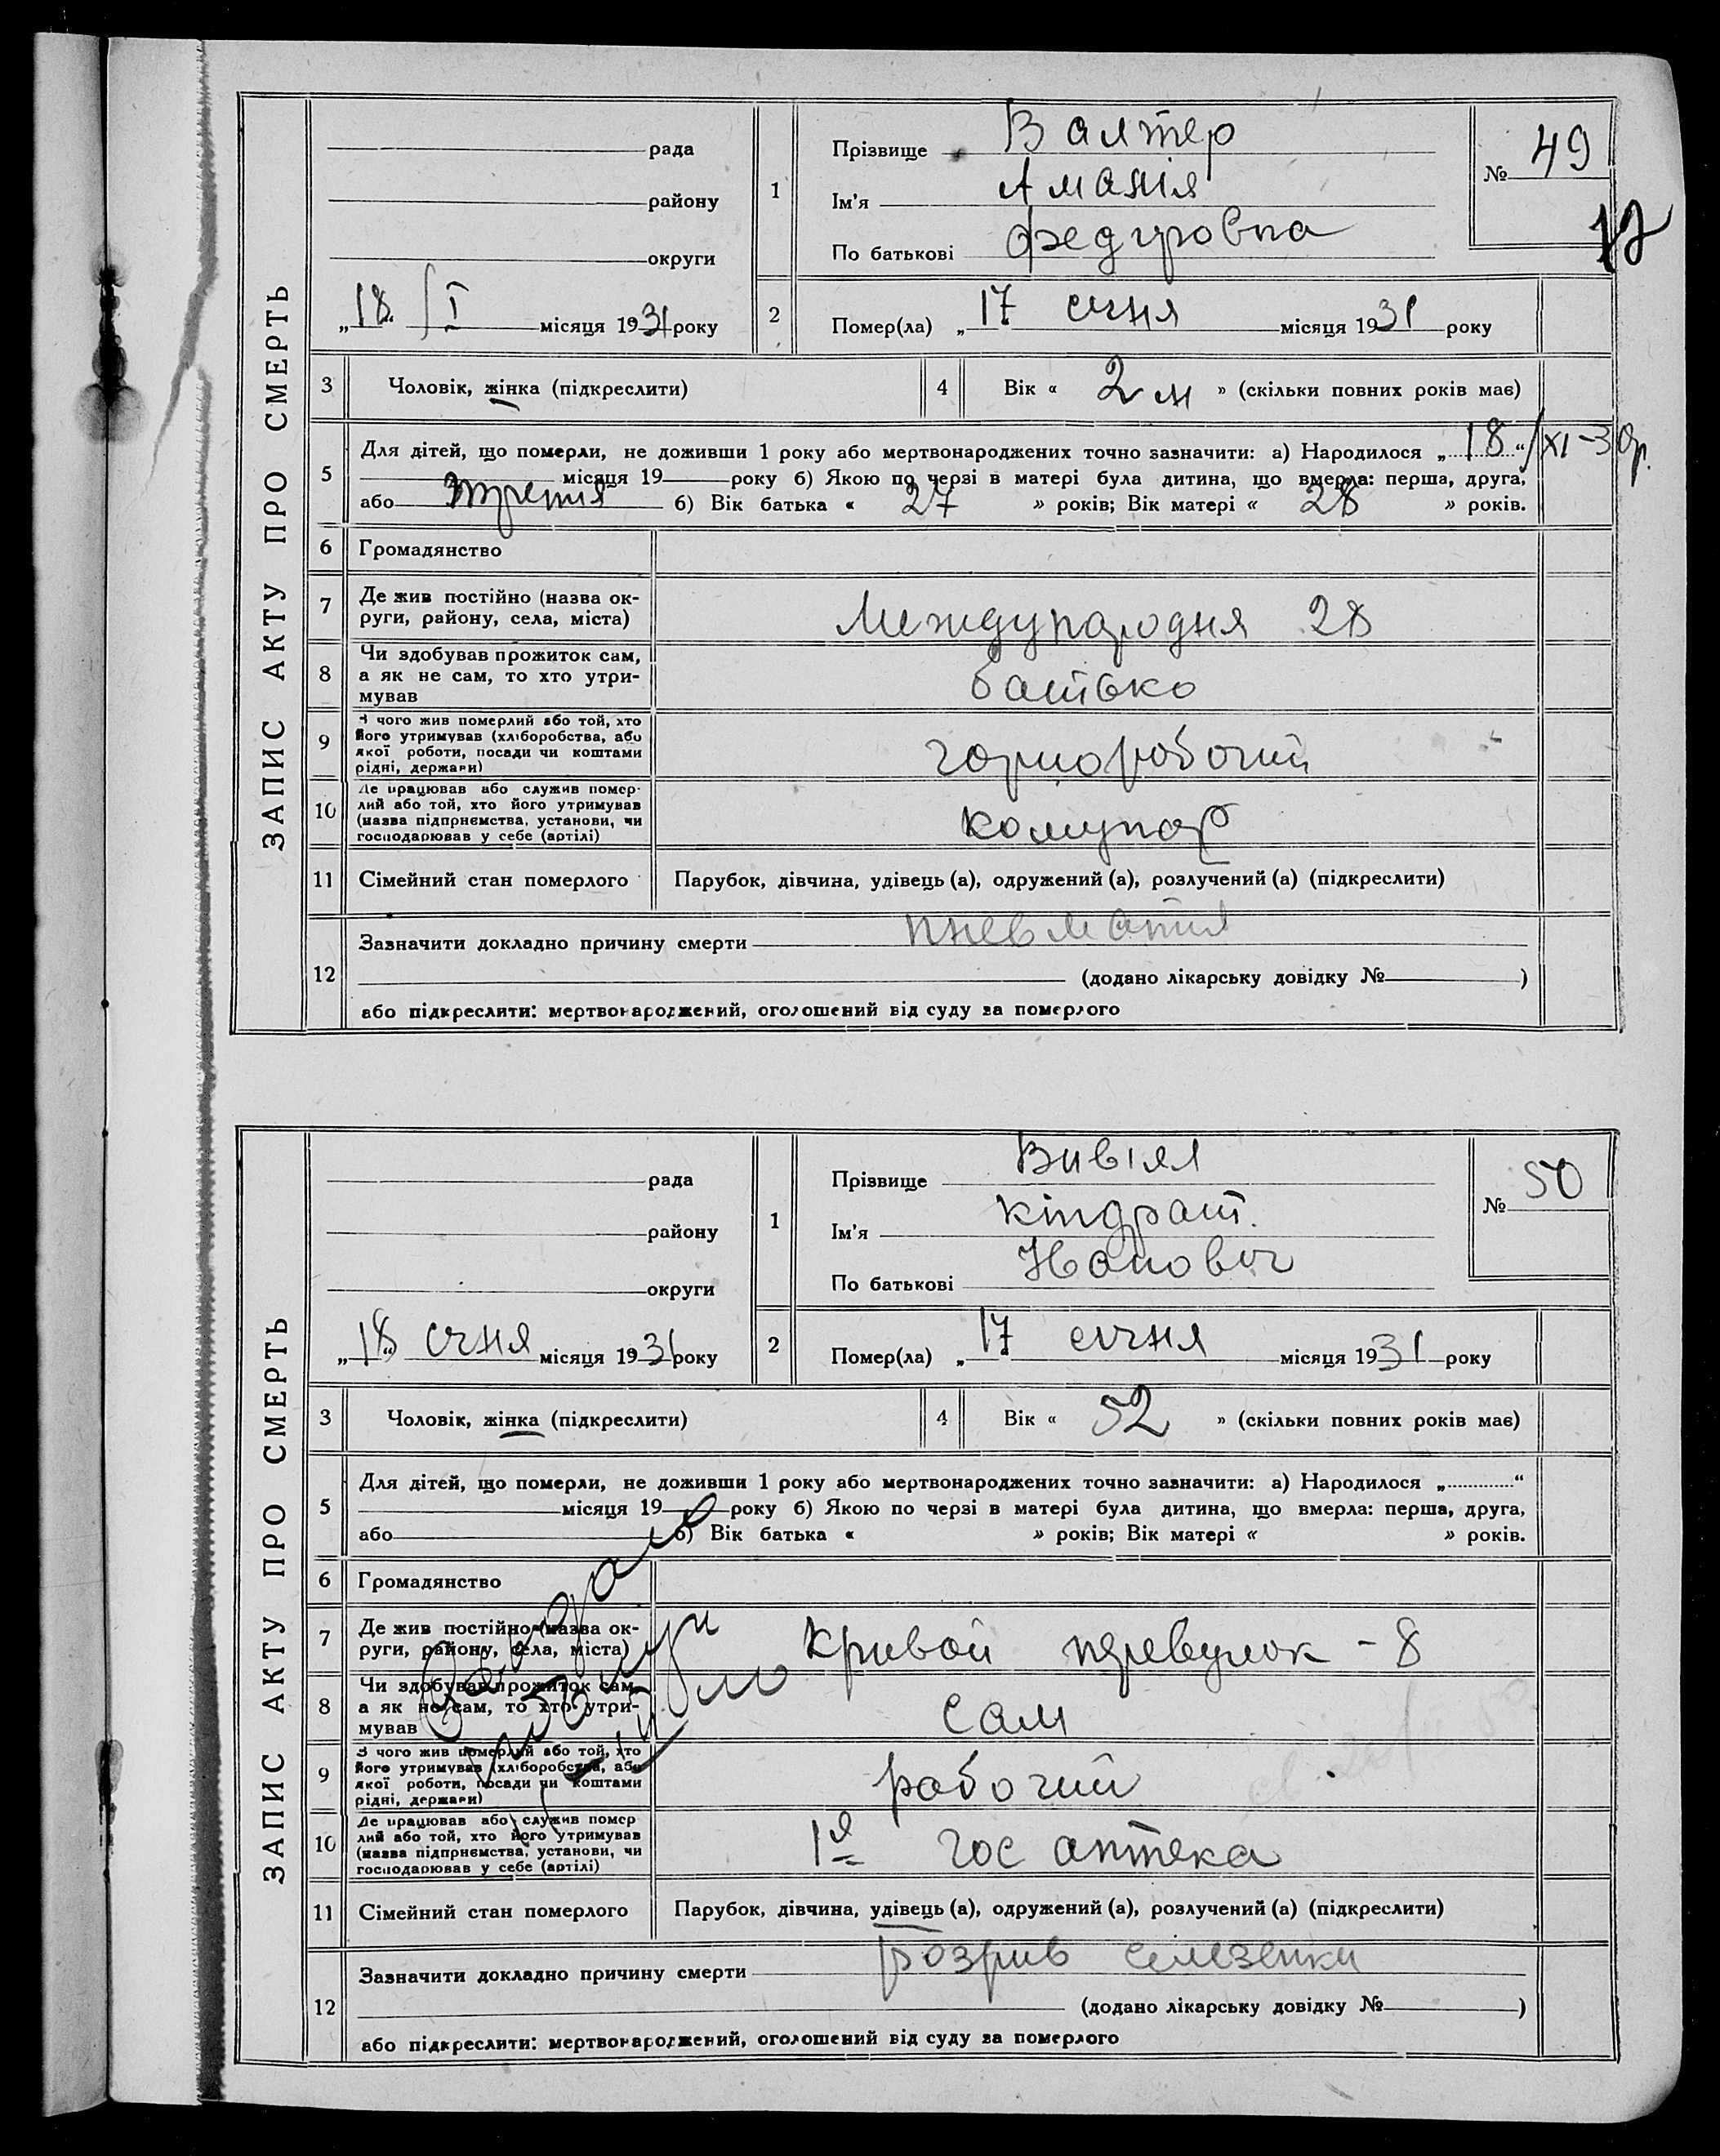 ЗАПИС АКТУ ПРО СМЕРТЬ
рада
району
округи
„18“ / I місяця 1931 року
1
Прізвище Валтер
Ім'я Амалія
По батькові Федуровна
№ 49
17
2
Помер(ла) „17 січня місяця 1931 року
3 Чоловік, жінка (підкреслити)
4 Вік « 2 м » (скільки повних років має)
5 Для дітей, що померли, не доживши 1 року або мертвонароджених точно зазначити: а) Народилося „18“/XI-30р.
місяця 19 року б) Якою по черзі в матері була дитина, що вмерла: перша, друга,
або третя б) Вік батька « 27 » років; Вік матері « 28 » років.
6 Громадянство
7 Де жив постійно (назва ок-
руги, району, села, міста)
Международня 28
8 Чи здобував прожиток сам,
а як не сам, то хто утри-
мував
батько
9 З чого жив померлий або той, хто
його утримував (хліборобства, або
якої роботи, посади чи коштами
рідні, держави)
чорноробочий
10 Де працював або служив помер-
лий або той, хто його утримував
(назва підприємства, установи, чи
господарював у себе (артілі)
Комунар
11 Сімейний стан померлого
Парубок, дівчина, удівець (а), одружений (а), розлучений (а) (підкреслити)
12 Зазначити докладно причину смерти пневмания
(додано лікарську довідку № )
або підкреслити: мертвонароджений, оголошений від суду за померлого
ЗАПИС АКТУ ПРО СМЕРТЬ
рада
району
округи
„18“ січня місяця 1931 року
1
Прізвище Вивіял
Ім'я Кіндрат.
По батькові
№ 50
2
Помер(ла) „17 січня місяця 1931 року
3 Чоловік, жінка (підкреслити)
4 Вік « 52 » (скільки повних років має)
5 Для дітей, що померли, не доживши 1 року або мертвонароджених точно зазначити: а) Народилося „ “
місяця 19 року б) Якою по черзі в матері була дитина, що вмерла: перша, друга,
або б) Вік батька « » років; Вік матері « » років.
6 Громадянство
7 Де жив постійно (назва ок-
руги, району, села, міста)
Кривой перевулок - 8
8 Чи здобував прожиток сам,
а як не сам, то хто утри-
мував
Сам
9 З чого жив померлий або той, хто
його утримував (хліборобства, або
якої роботи, посади чи коштами
рідні, держави)
робочий
10 Де працював або служив помер-
лий або той, хто його утримував
(назва підприємства, установи, чи
господарював у себе (артілі)
1я гос аптека
11 Сімейний стан померлого
Парубок, дівчина, удівець (а), одружений (а), розлучений (а) (підкреслити)
12 Зазначити докладно причину смерти розрив селезенки
(додано лікарську довідку № )
або підкреслити: мертвонароджений, оголошений від суду за померлого